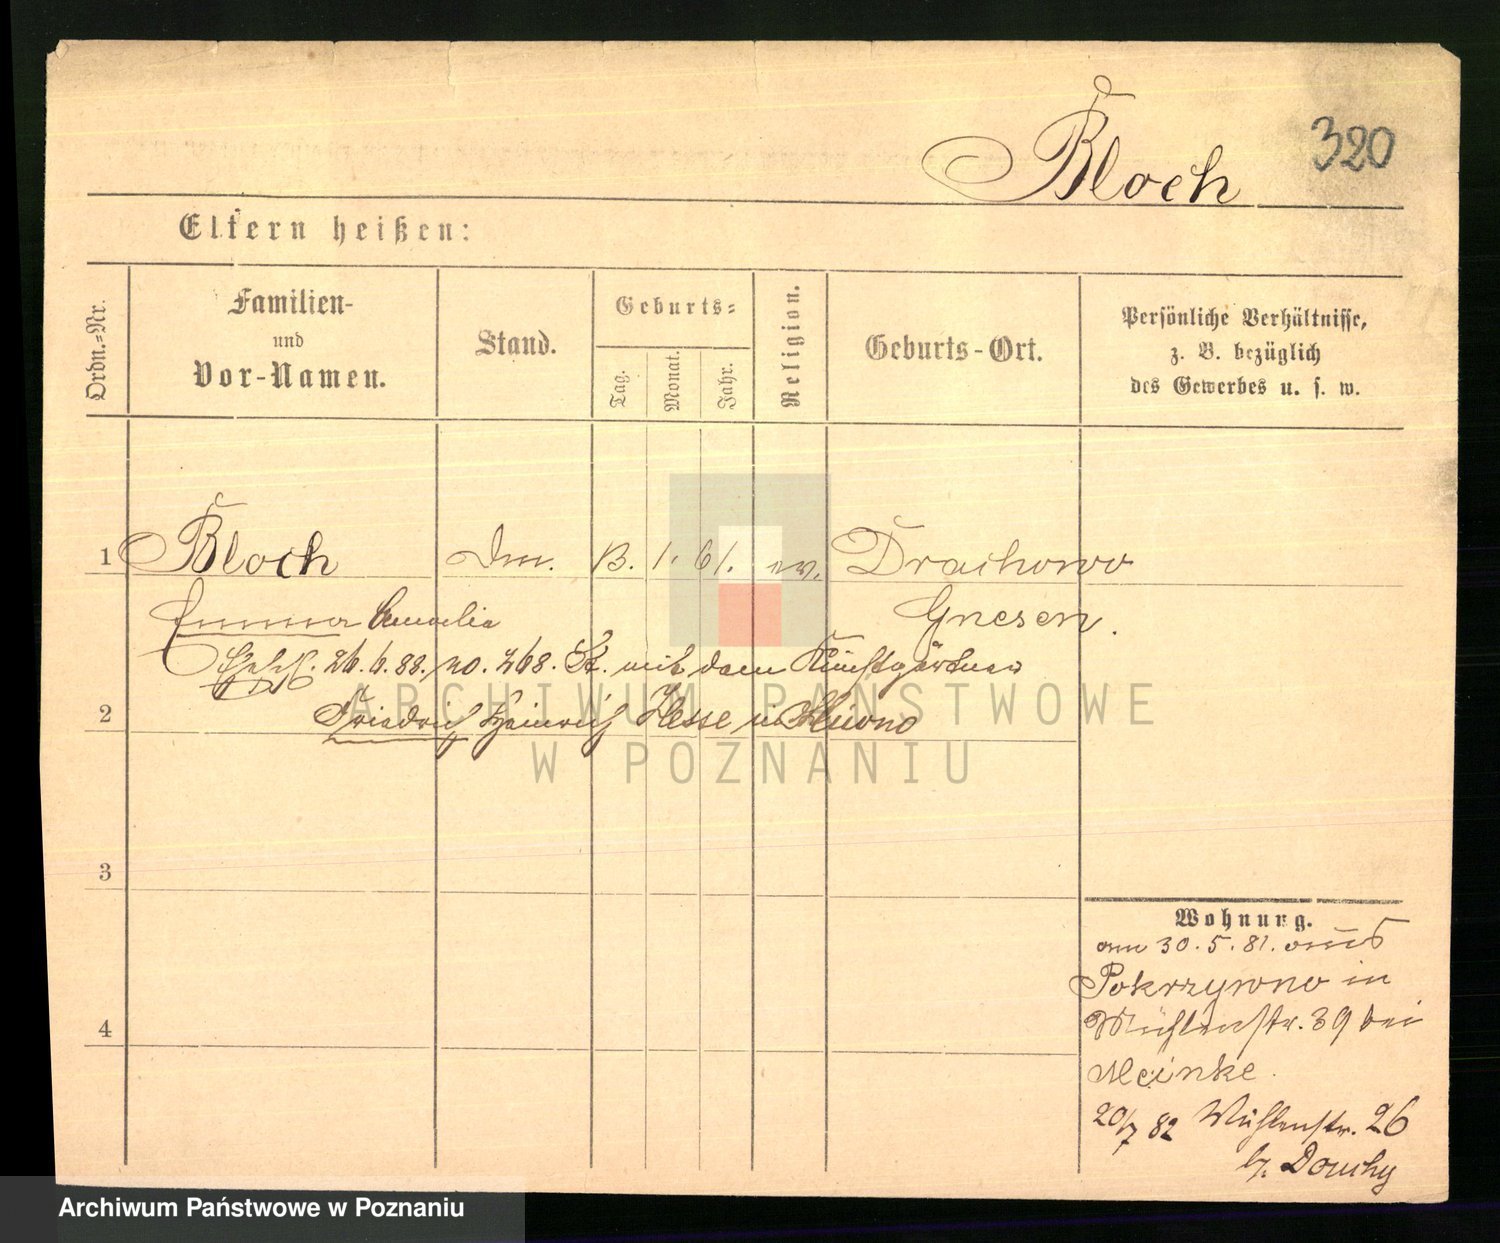 Bloch
320
Eltern heißen:
Ordn.=Nr.
Familien-
und
Vor-Namen.
Stand.
Geburts=
Tag.
Monat.
Jahr.
Religion.
Geburts-Ort.
Persönliche Verhältnisse,
z. B. bezüglich
des Gewerbes u. s. w.
1 Bloch 13. 1. 61. ev. Drachowo
Emma Amalie Gnesen.
26.6.88. no. 468. St. mit dem Kunstgärtner
2 Friedrich Heinrich Hesse in
3
4
Wohnung.
am 30.5.81. aus
Pokrzywno in
Mühlenstr. 39 bei
Meinke.
20/7 82 Mühlenstr. 26
b.
ARCHIWUM PAŃSTWOWE
W POZNANIU
Archiwum Państwowe w Poznaniu